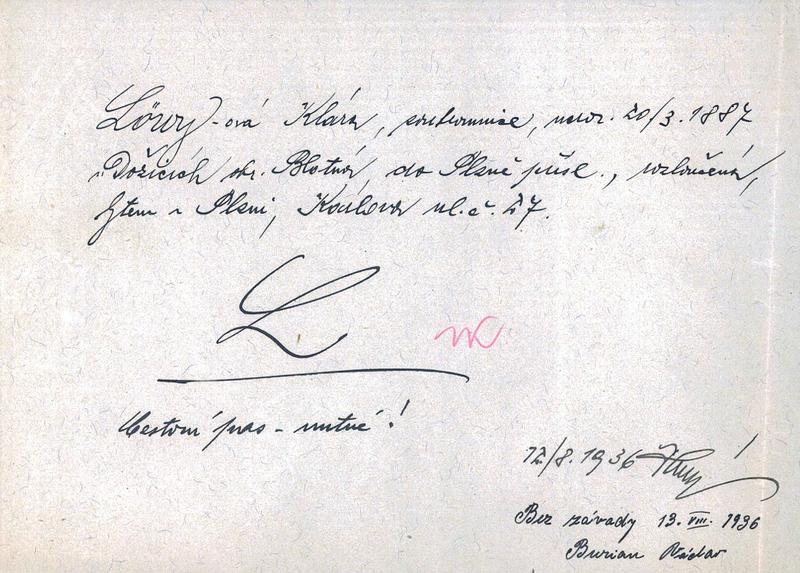 Löwy-ová Klára, soukromnice, naroz. 20/3. 1887
v Dožicích okr. Blotná, do Plzně přísl., rozloučená,
bytem v Plzni, Koulova ul. č. 27.
L
VK
Cestovní pas - nutné!
12/8. 1936
Bez závady 13. VIII. 1936
Burian Václav